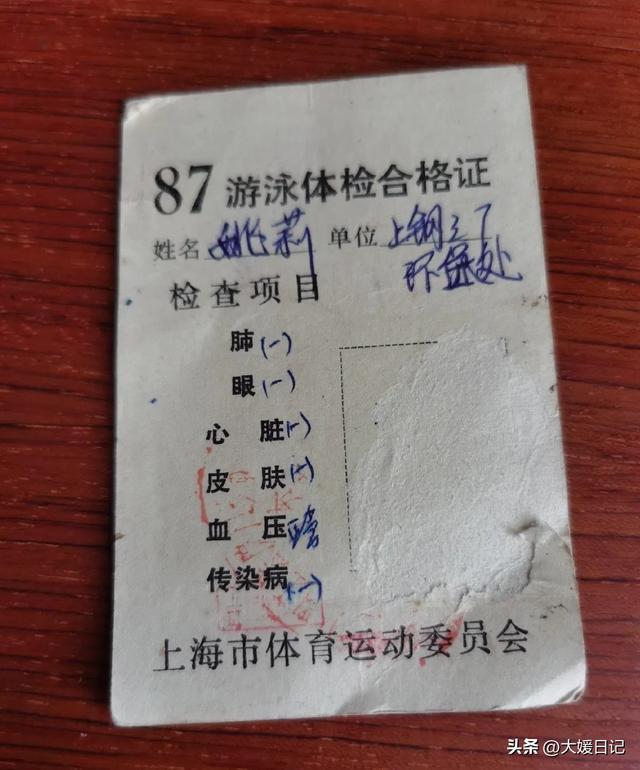 87游泳体检合格证
姓名 姚莉 单位 上钢三厂
环保处
检查项目
肺(一)
眼(一)
心脏(一)
皮肤(一)
血压
传染病(一)
上海市体育运动委员会
头条 @大媛日记